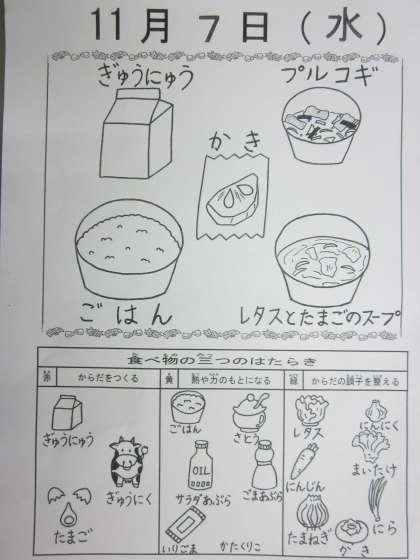 11月7日(水)
ぎゅうにゅう
プルコギ
かき
ごはん
レタスとたまごのスープ
食べ物の三つのはたらき
赤 からだをつくる
黄 熱や力のもとになる
緑 からだの調子を整える
ぎゅうにゅう
ぎゅうにく
たまご
ごはん
さとう
OIL
サラダあぶら
ごまあぶら
いりごま
かたくりこ
レタス
にんにく
にんじん
まいたけ
たまねぎ
かき
にら